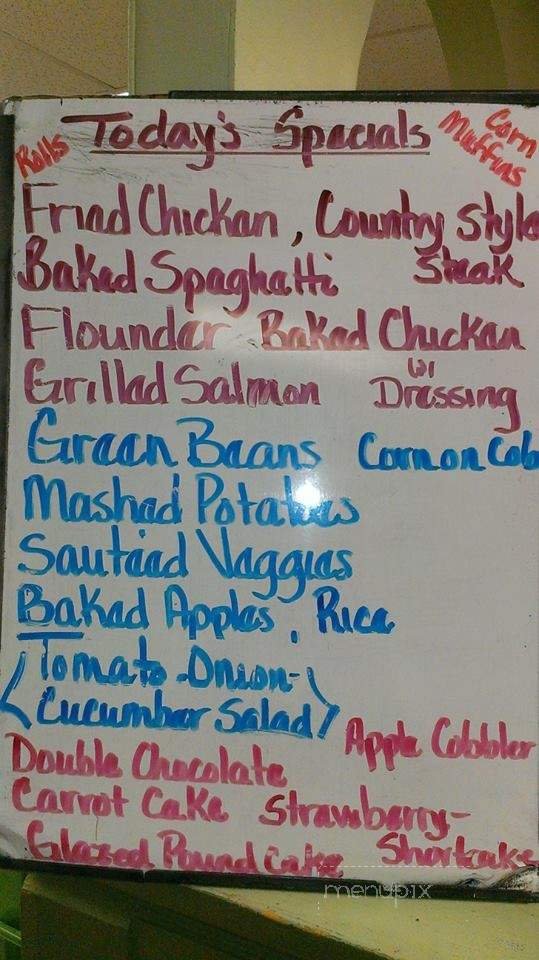 Rolls
Today's Specials
Corn Muffins
Fried Chicken, Country Style Steak
Baked Spaghetti
Flounder Baked Chicken w/ Dressing
Grilled Salmon
Green Beans Corn on Cob
Mashed Potatoes
Sauteed Veggies
Baked Apples, Rice
(Tomato-Onion-
Cucumber Salad)
Apple Cobbler
Double Chocolate
Carrot Cake Strawberry-
Shortcake
Glazed Pound Cake
menupix